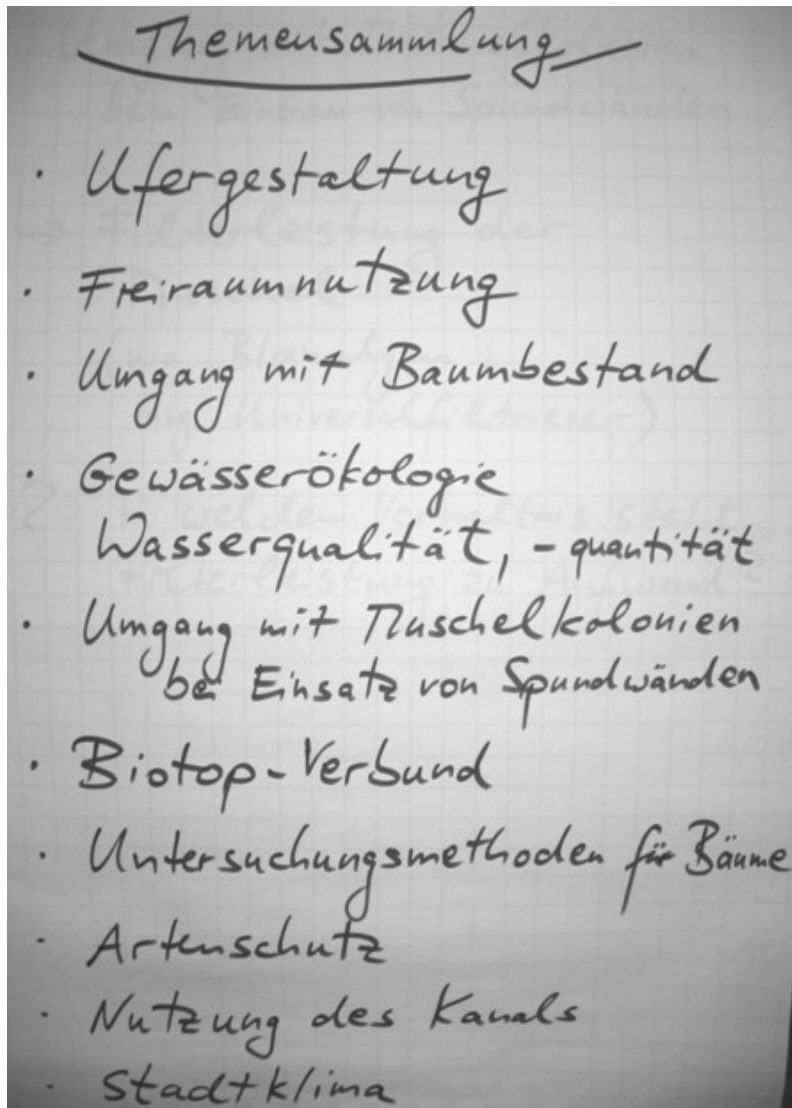 Themensammlung
· Ufergestaltung
· Freiraumnutzung
· Umgang mit Baumbestand
· Gewässerökologie
Wasserqualität, - quantität
· Umgang mit Muschelkolonien
bei Einsatz von Spundwänden
· Biotop-Verbund
· Untersuchungsmethoden für Bäume
· Artenschutz
· Nutzung des Kanals
· Stadtklima